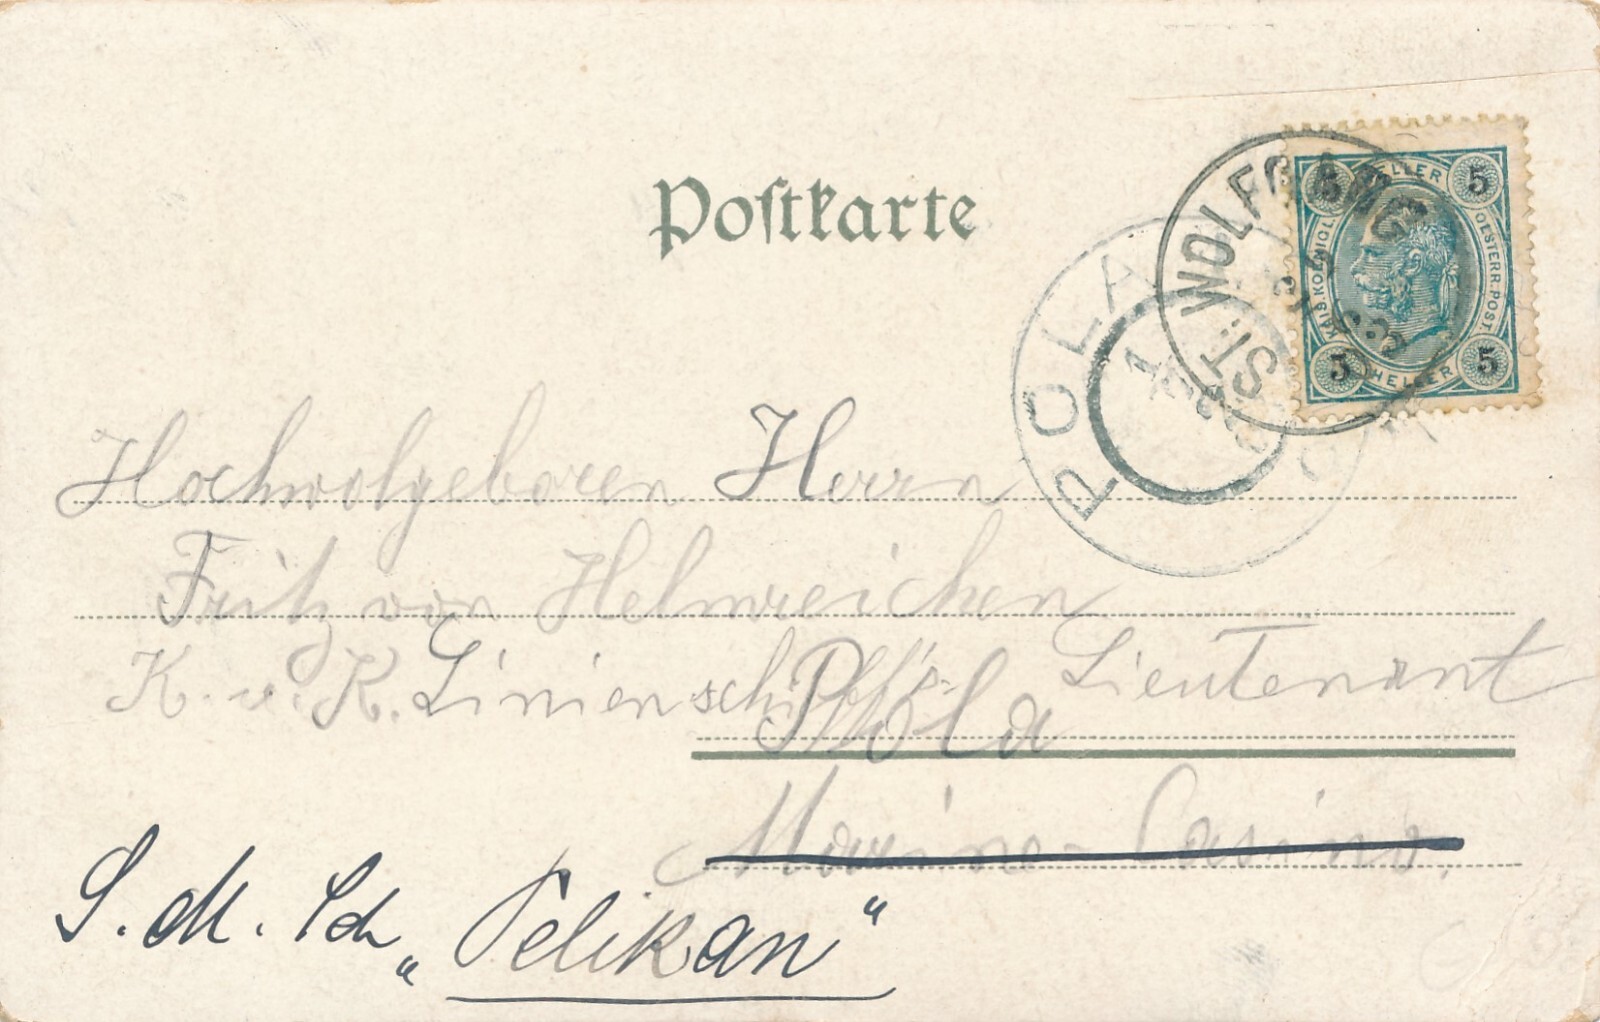 Postkarte
HELLER
5 5
KAIS. KOENIGL. OESTERR. POST.
5 5
HELLER
ST: WOLFGANG
POLA
Hochwolgeboren Herrn
Fritz von Helmreichen
K. u. K. Linienschiffs-Lieutenant
Pola
Marine-Casino.
S. M. Sch „Pelikan“